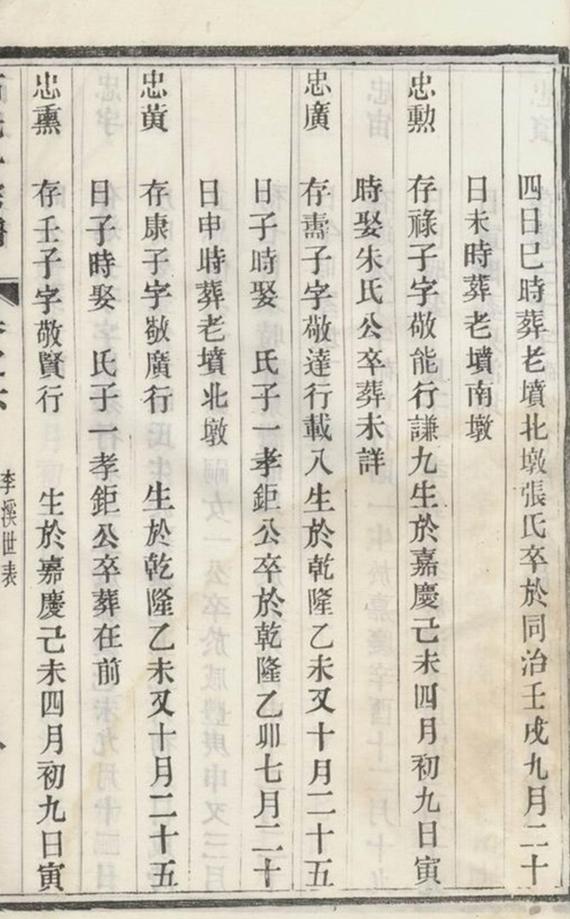 四日巳時葬老墳北墩張氏卒於同治壬戌九月二十
日未時葬老墳南墩
忠勲 存祿子字敬能行謙九生於嘉慶己未四月初九日寅
時娶朱氏公卒葬未詳
忠廣 存壽子字敬達行載入生於乾隆乙未又十月二十五
日子時娶 氏子一孝鉅公卒於乾隆乙卯七月二十
日申時葬老墳北墩
忠黄 存康子字敬廣行 生於乾隆乙未又十月二十五
日子時娶 氏子一孝鉅公卒葬在前
忠熏 存壬子字敬賢行 生於嘉慶己未四月初九日寅
李溪世表